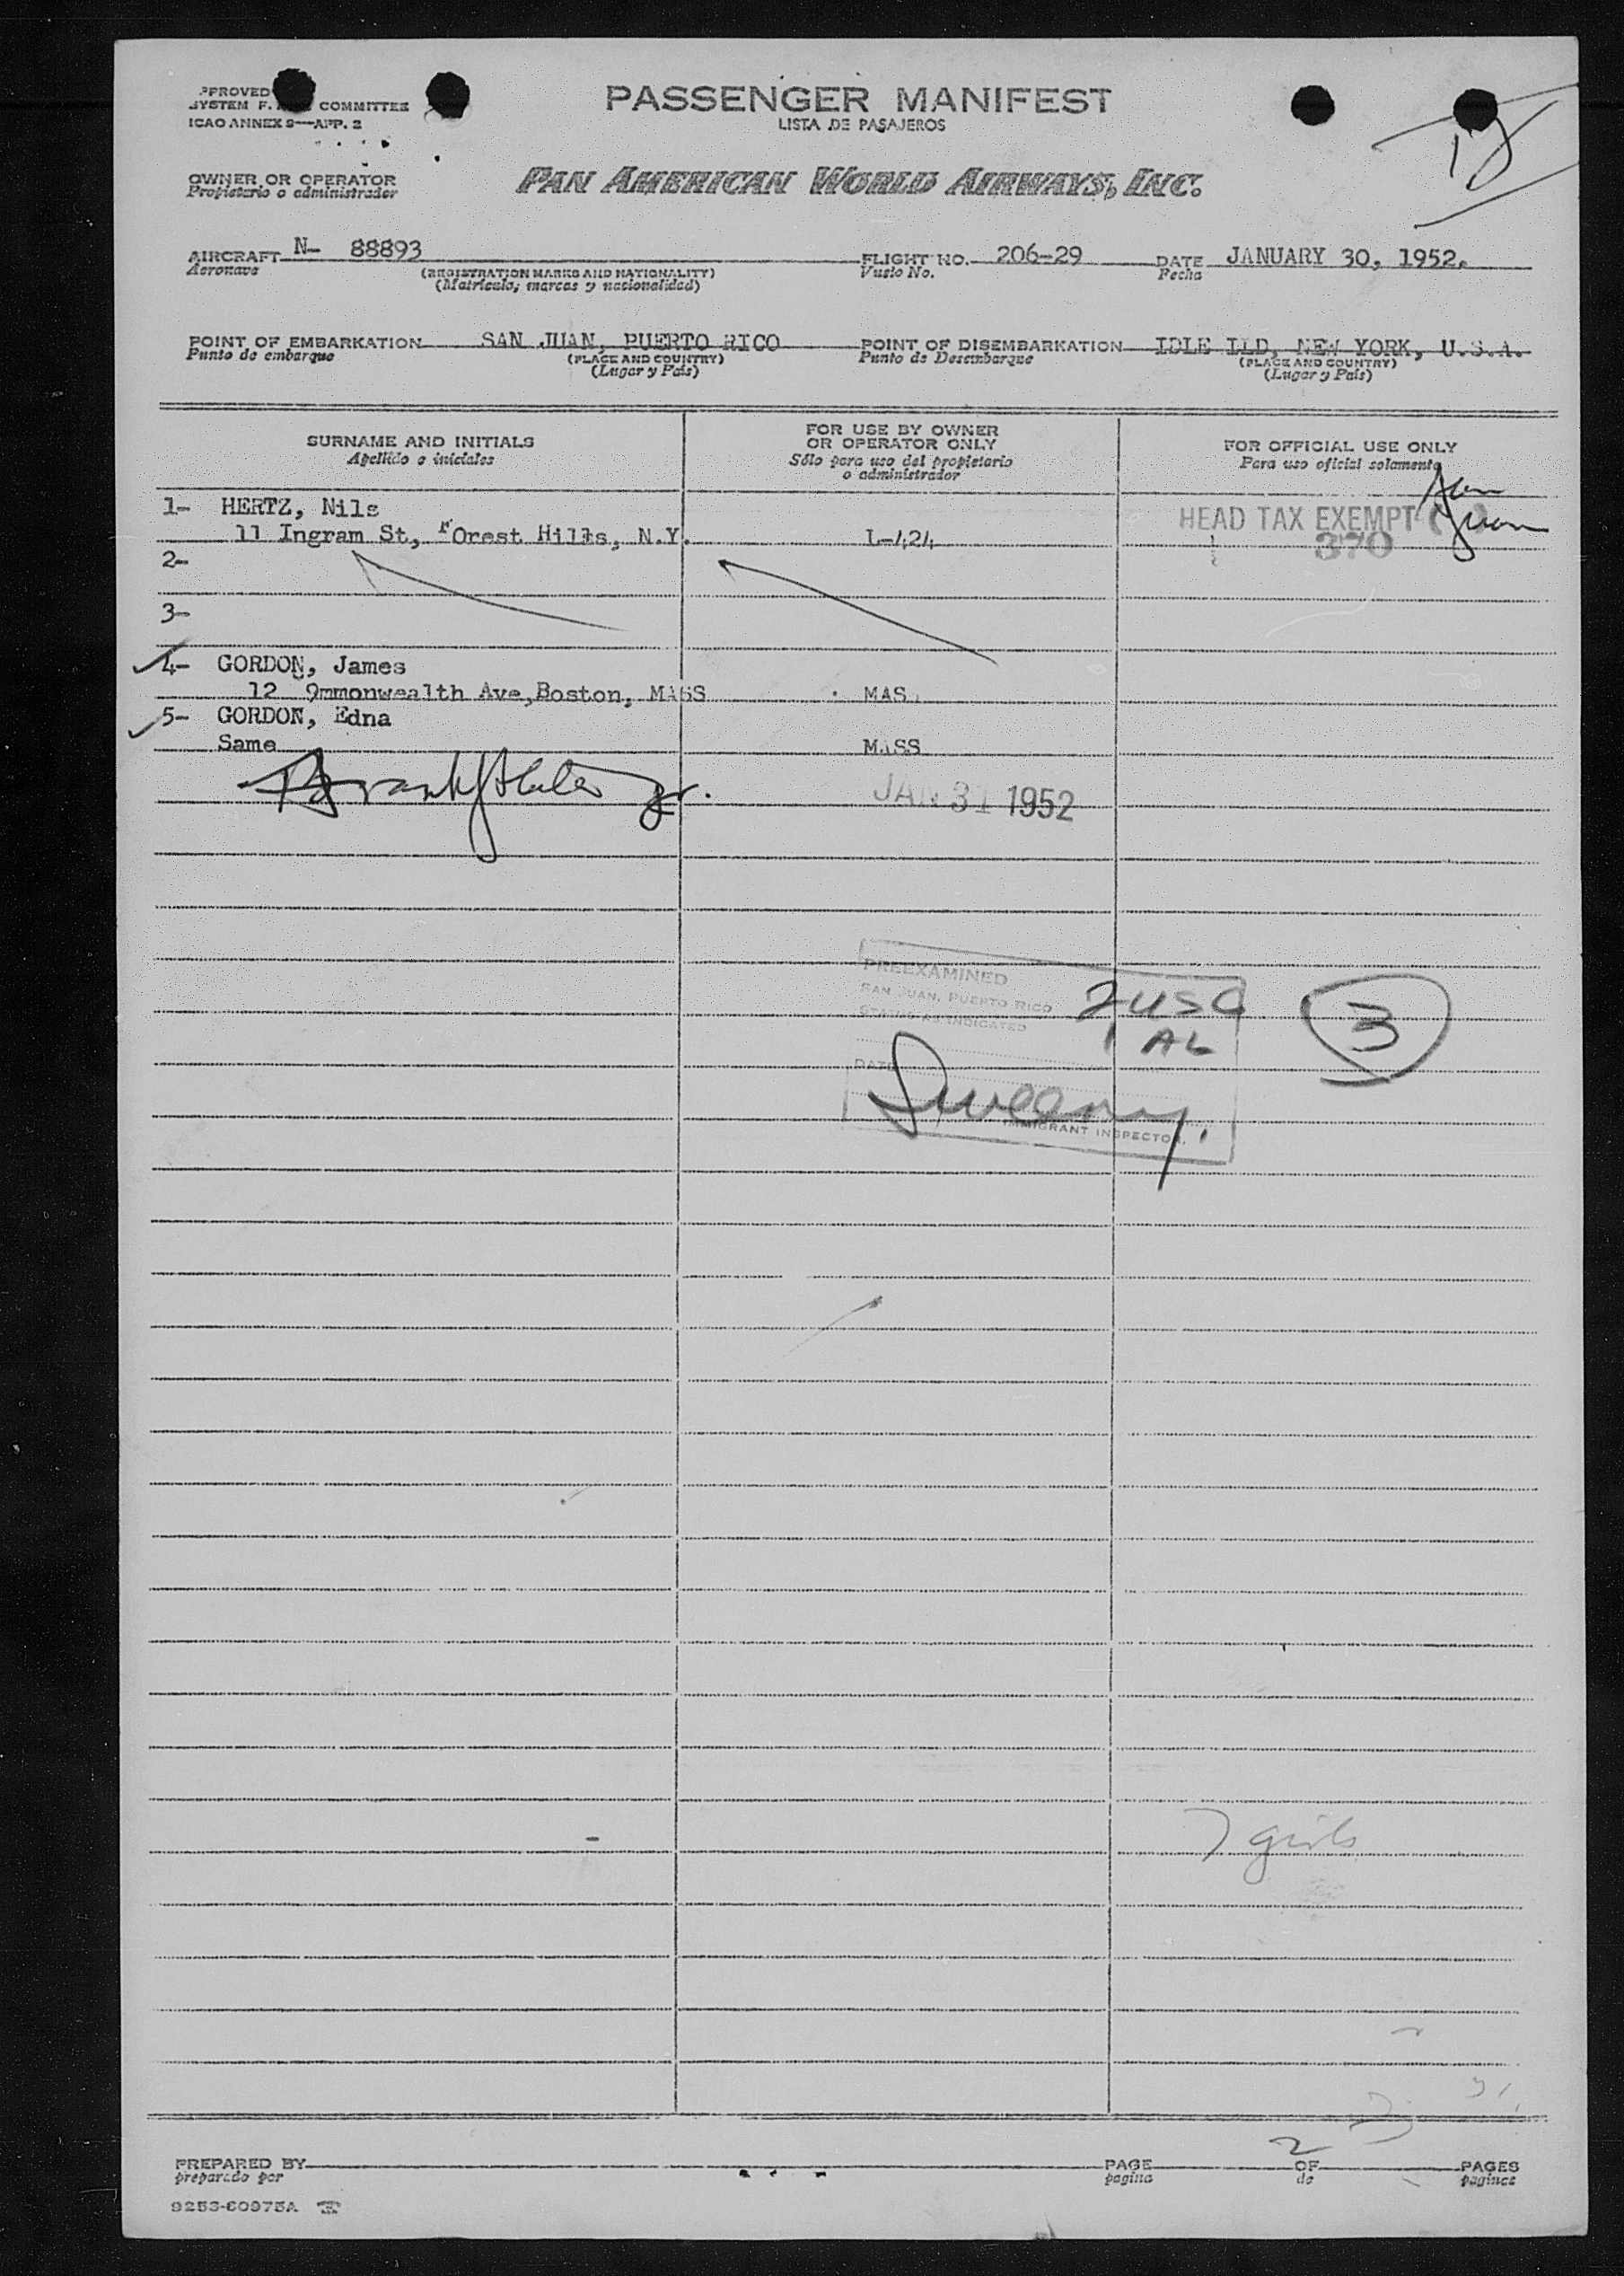 PASSENGER MANIFEST
LISTA DE PASAJEROS
COMMITTEE
ICAO ANNEX 9—APP. 2
OWNER OR OPERATOR
Propietario o administrador
PAN AMERICAN WORLD AIRWAYS, INC.
AIRCRAFT N- 88893 FLIGHT NO. 206-29 DATE JANUARY 30, 1952.
Aeronave (REGISTRATION MARKS AND NATIONALITY) Vuelo No. Fecha
(Matricula, marcas y nacionalidad)
POINT OF EMBARKATION SAN JUAN, PUERTO RICO POINT OF DISEMBARKATION IDLE ILD, NEW YORK, U.S.A.
Punto de embarque (PLACE AND COUNTRY) Punto de Desembarque (PLACE AND COUNTRY)
(Lugar y País) (Lugar y País)
SURNAME AND INITIALS
Apellido e iniciales
FOR USE BY OWNER
OR OPERATOR ONLY
Sólo para uso del propietario
o administrador
FOR OFFICIAL USE ONLY
Para uso oficial solamente
1- HERTZ, Nils
11 Ingram St, Forest Hills, N.Y. L-424
HEAD TAX EXEMPT
370
2-
3-
4- GORDON, James
12 ommonwealth Ave,Boston, MASS MAS
5- GORDON, Edna
Same MASS
JAN 31 1952
PREEXAMINED
SAN JUAN, PUERTO RICO
STATUS AS INDICATED
2 USC
1 AL
3
DATE
Sweeney.
IMMIGRANT INSPECTOR.
7 girls
2
PREPARED BY PAGE OF PAGES
preparado por pagina de paginas
9253-60975A